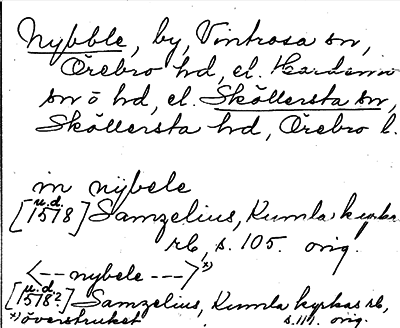 Nybble, by, Vintrosa sn,
Örebro hd, el. Hardemo
sn o hd, el. Sköllersta sn,
Sköllersta hd, Örebro l.
in nybele
[u.d. 1578] Samzelius, Kumla kyrkas
rb, s. 105. orig.
<-- nybele --->x)
[u.d. 1578?] Samzelius, Kumla kyrkas rb,
x) överstruket s. 111. orig.